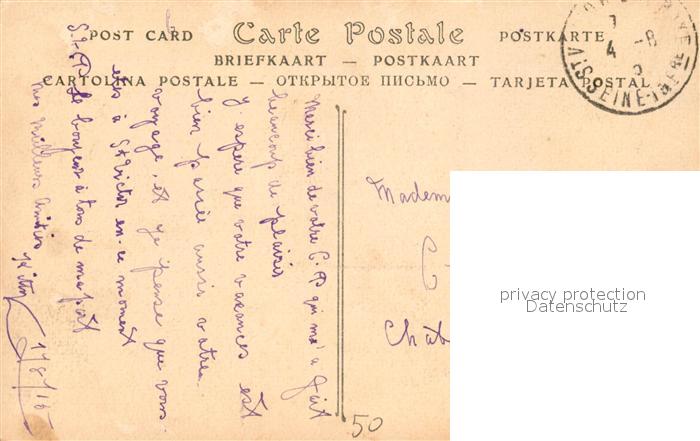 POST CARD Carte Postale POSTKARTE
BRIEFKAART — POSTKAART
CARTOLINA POSTALE — ОТКРЫТОЕ ПИСЬМО — TARJETA POSTAL
7
4 -8
SEINE-INFRE
Merci bien de votre C.P qui m'a fait
beaucoup de plaisir
J'espère que votre vacances est
bien passée aussi votre
voyage, et je pense que vous
etes à St Victor en-ce moment
le bonjour à tous de ma part
mes meilleurs amitiés
1/8/15
Madem
C
Chât
50
privacy protection
Datenschutz